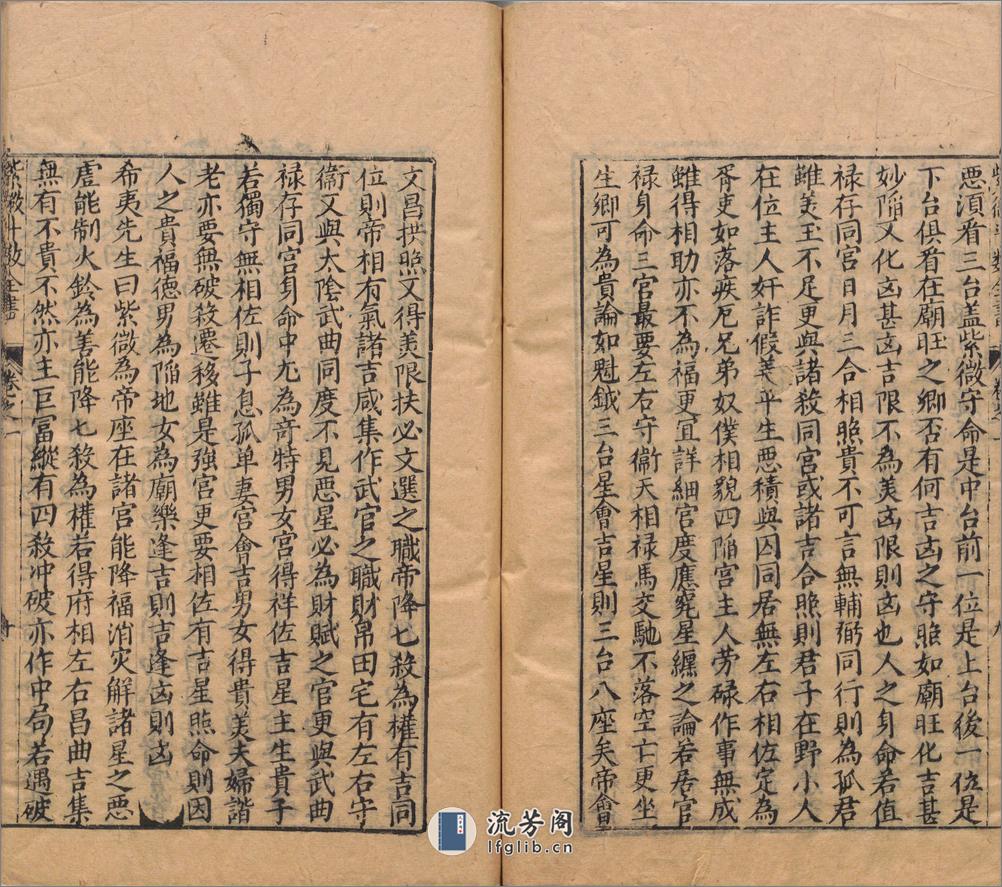 惡湏看三台盖紫微守命是中台前一位是上台後一位是
下台俱看在廟旺之鄉否有何吉凶之守照如廟旺化吉甚
妙陥又化凶甚凶吉限不為美凶限則凶也人之身命若值
禄存同宮日月三合相照貴不可言無輔弼同行則為孤君
雖美玉不足更與諸殺同宮或諸吉合照則君子在野小人
在位主人奸詐假善平生惡積與囚同居無左右相佐定為
胥吏如落疾厄兄弟奴僕相貌四陥宮主人劳碌作事無成
雖得相助亦不為福更宜詳細宮度應䟫星纏之論若居官
禄身命三宮最要左右守衛天相禄馬交馳不落空亡更坐
生鄉可為貴論如魁鉞三台星會吉星則三台八座矣帝會
文昌拱照又得美限扶必文選之職帝降七殺為權有吉同
位則帝相有氣諸吉咸集作武官之職財帛田宅有左右守
衛又與太陰武曲同度不見惡星必為財賦之官更與武曲
禄存同宮身命中尤為竒特男女宮得祥佐吉星主生貴子
若獨守無相佐則子息孤单妻宮會吉男女得貴美夫婦諧
老亦要無破殺遷移雖是強宮更要相佐有吉星照命則因
人之貴福德男為陥地女為廟樂逢吉則吉逢凶則凶
希夷先生曰紫微為帝座在諸宮能降福消灾解諸星之惡
虗能制火鈴為善能降七殺為權若得府相左右昌曲吉集
無有不貴不然亦主巨冨縱有四殺冲破亦作中局若遇破
紫微斗数全書
卷之一
流芳阁
lfglib.cn